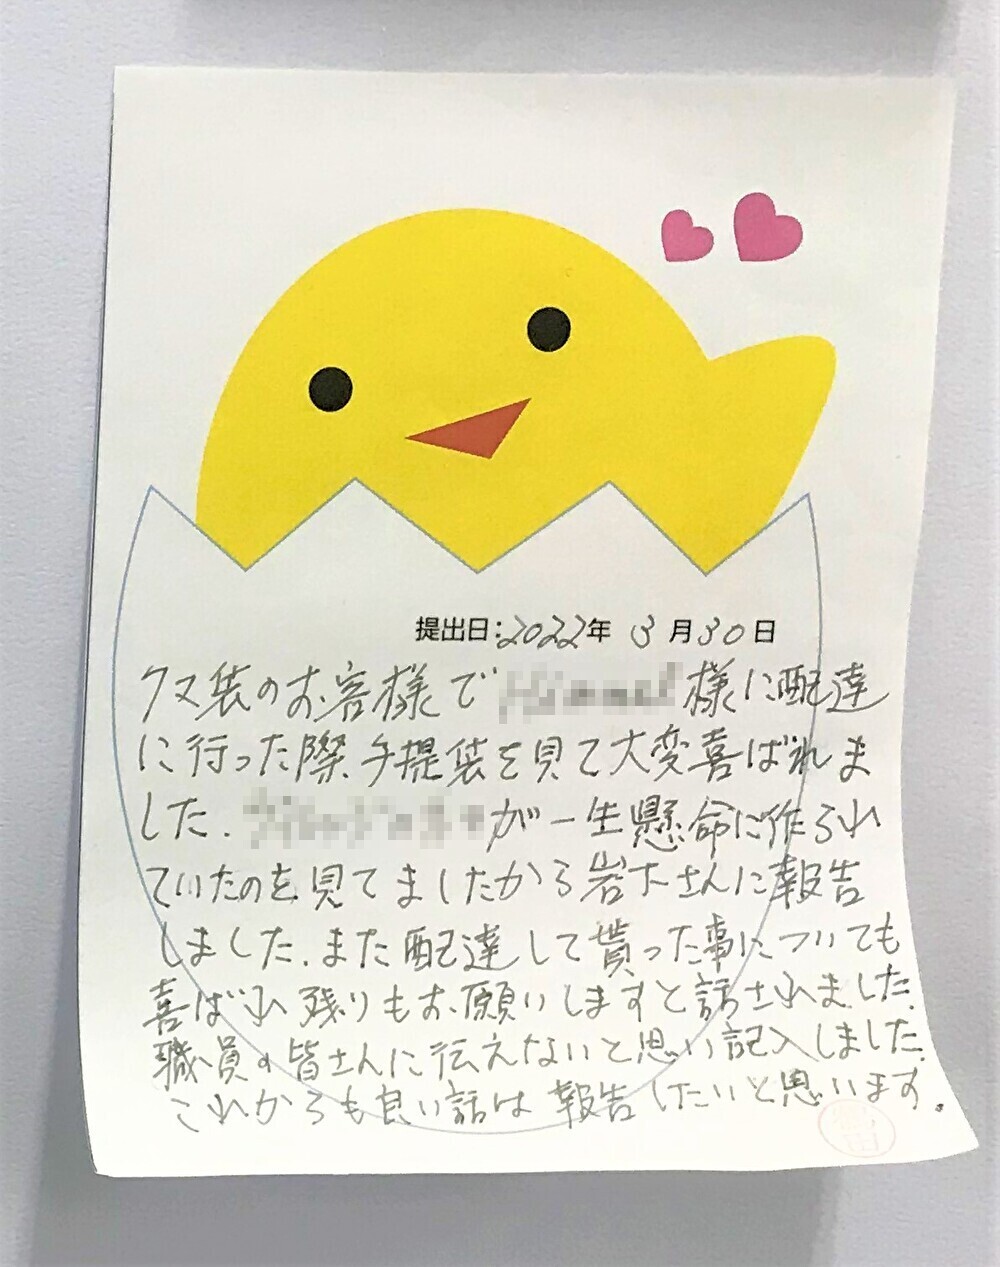 提出日:2022年 3月30日
クス袋のお客様で 様に配達
に行った際手提袋を見て大変喜ばれま
した. が一生懸命に作られ
ていたのを見てましたから岩下さんに報告
しました.また配達して貰った事についても
喜ばれ残りもお願いしますと話されました.
職員の皆さんに伝えないと思い記入しました.
これからも良い話は報告したいと思います.